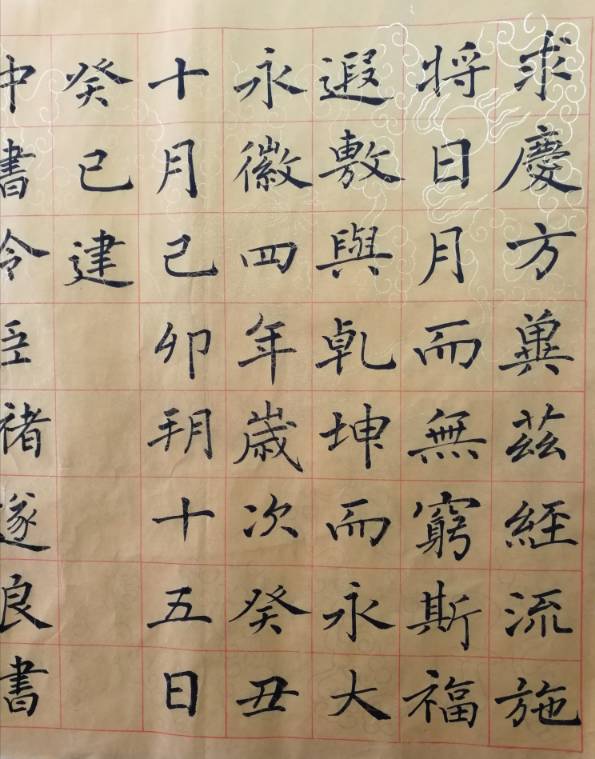 求慶方冀茲經流施
将日月而無窮斯福
遐敷與乹坤而永大
永徽四年歳次癸丑
十月己卯朔十五日
癸巳建
中書令臣褚遂良書